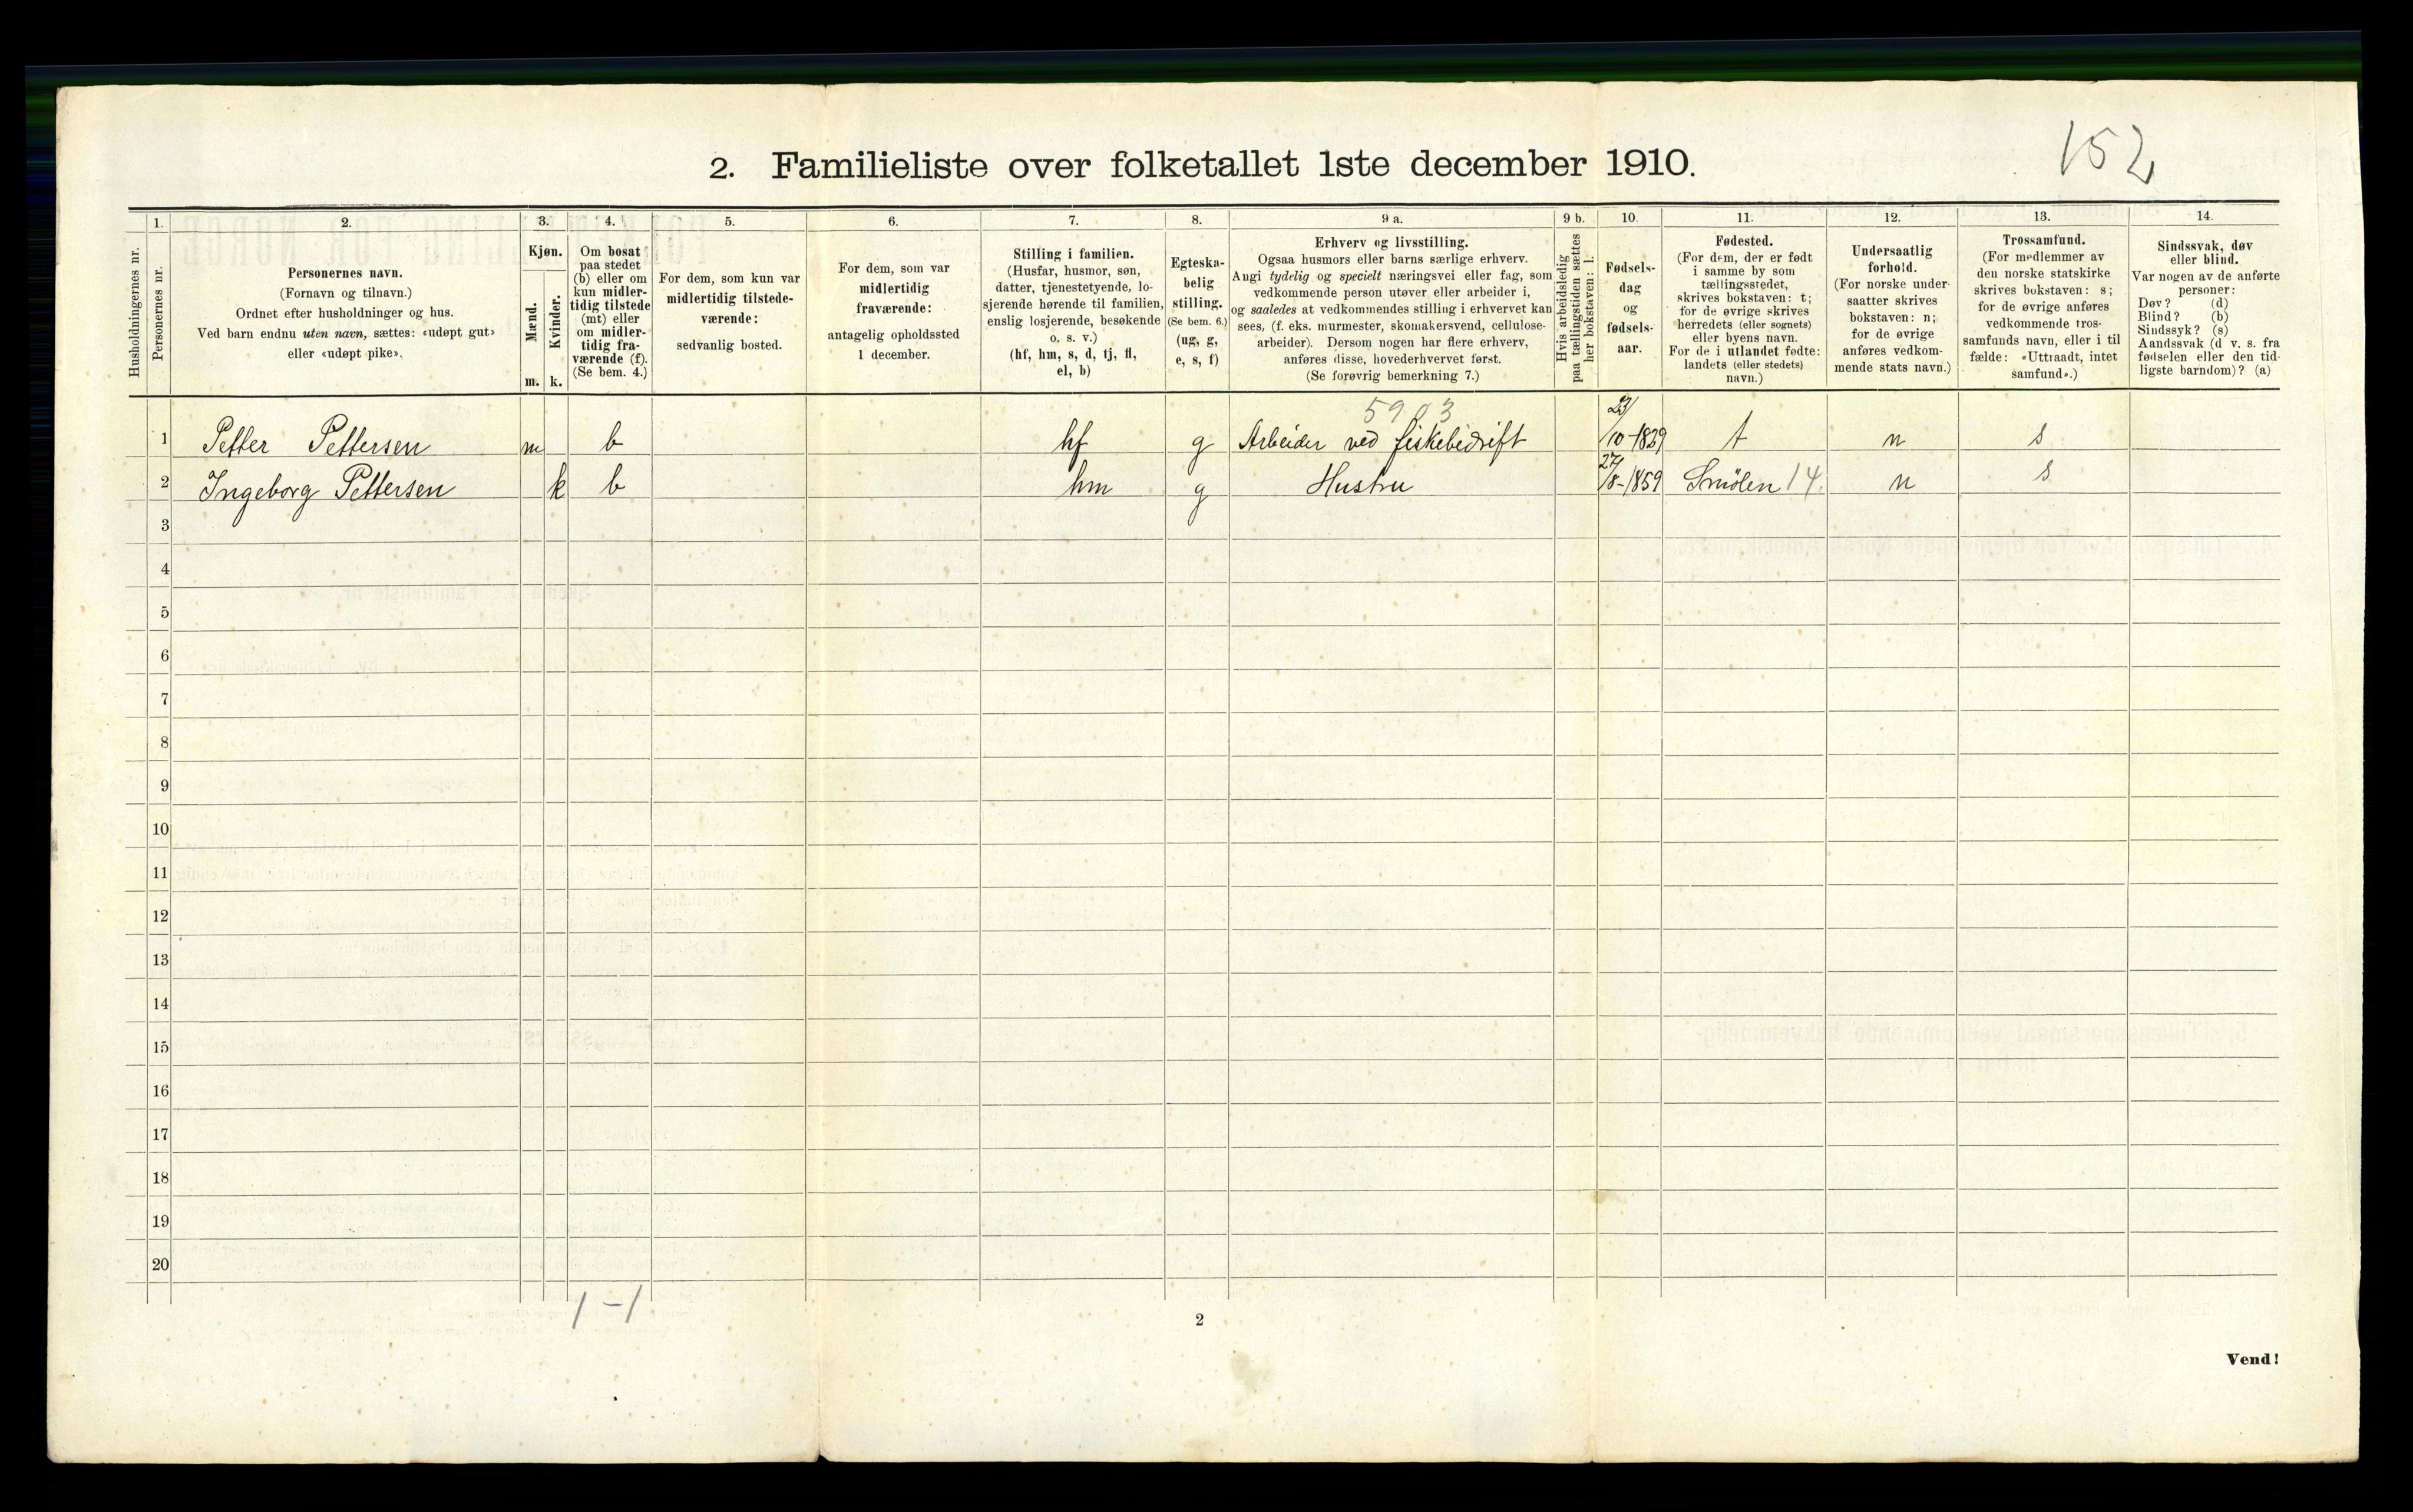 152
2. Familieliste over folketallet 1ste december 1910.
Husholdningernes nr.
1.
Personernes nr.
2.
Personernes navn.
(Fornavn og tilnavn.)
Ordnet efter husholdninger og hus.
Ved barn endnu uten navn, sættes: «udøpt gut»
eller «udøpt pike».
3.
Kjøn.
Mænd.
Kvinder.
m. k.
4.
Om bosat
paa stedet
(b) eller om
kun midler-
tidig tilstede
(mt) eller
om midler-
tidig fra-
værende (f).
(Se bem. 4.)
5.
For dem, som kun var
midlertidig tilstede-
værende:
sedvanlig bosted.
6.
For dem, som var
midlertidig
fraværende:
antagelig opholdssted
1 december.
7.
Stilling i familien.
(Husfar, husmor, søn,
datter, tjenestetyende, lo-
sjerende hørende til familien,
enslig losjerende, besøkende
o. s. v.)
(hf, hm, s, d, tj, fl,
el, b)
8.
Egteska-
belig
stilling.
(Se bem. 6.)
(ug, g,
e, s, f)
9 a.
Erhverv og livsstilling.
Ogsaa husmors eller barns særlige erhverv.
Angi tydelig og specielt næringsvei eller fag, som
vedkommende person utøver eller arbeider i,
og saaledes at vedkommendes stilling i erhvervet kan
sees, (f. eks. murmester, skomakersvend, cellulose-
arbeider). Dersom nogen har flere erhverv,
anføres disse, hovederhvervet først.
(Se forøvrig bemerkning 7.)
9 b.
Hvis arbeidsledig
paa tællingstiden sættes
her bokstaven: l.
10.
Fødsels-
dag
og
fødsels-
aar.
11.
Fødested.
(For dem, der er født
i samme by som
tællingsstedet,
skrives bokstaven: t;
for de øvrige skrives
herredets (eller sognets)
eller byens navn.
For de i utlandet fødte:
landets (eller stedets)
navn.)
12.
Undersaatlig
forhold.
(For norske under-
saatter skrives
bokstaven: n;
for de øvrige
anføres vedkom-
mende stats navn.)
13.
Trossamfund.
(For medlemmer av
den norske statskirke
skrives bokstaven: s;
for de øvrige anføres
vedkommende tros-
samfunds navn, eller i til-
fælde: «Uttraadt, intet
samfund».)
14.
Sindssvak, døv
eller blind.
Var nogen av de anførte
personer:
Døv? (d)
Blind? (b)
Sindssyk? (s)
Aandssvak (d v. s. fra
fødselen eller den tid-
ligste barndom)? (a)
5903
1 Petter Pettersen m b hf g Arbeider ved fiskebedrift 23/10-1839 t n s
2 Ingeborg Pettersen k b hm g Hustru 27/8-1859 Smölen 14. n s
3
4
5
6
7
8
9
10
11
12
13
14
15
16
17
18
19
20
1-1
2
Vend!